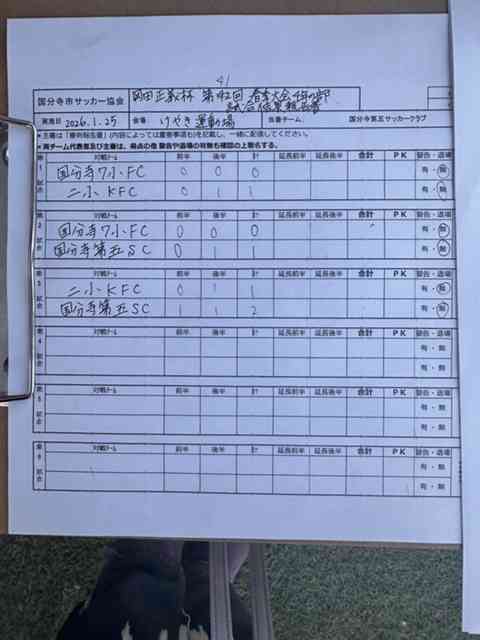 41
国分寺市サッカー協会 岡田正義杯 第42回 春季大会 4年の部
試合結果報告書
実施日 2026.1.25 会場: けやき運動場 担当チーム: 国分寺第五サッカークラブ
＊主審は「審判報告書」(内容によっては重要事項も)を記載し、一緒に配信してください。
＊両チーム代表者及び主審は、得点の他 警告や退場の有無も確認の上署名する。
第1試合 対戦チーム 前半 後半 計 延長前半 延長後半 合計 PK 警告・退場
国分寺7小FC 0 0 0 有・無
二小KFC 0 1 1 有・無
第2試合 対戦チーム 前半 後半 計 延長前半 延長後半 合計 PK 警告・退場
国分寺7小FC 0 0 0 有・無
国分寺第五SC 0 1 1 有・無
第3試合 対戦チーム 前半 後半 計 延長前半 延長後半 合計 PK 警告・退場
二小KFC 0 1 1 有・無
国分寺第五SC 1 1 2 有・無
第4試合 対戦チーム 前半 後半 計 延長前半 延長後半 合計 PK 警告・退場
有・無
有・無
第5試合 対戦チーム 前半 後半 計 延長前半 延長後半 合計 PK 警告・退場
有・無
有・無
第6試合 対戦チーム 前半 後半 計 延長前半 延長後半 合計 PK 警告・退場
有・無
有・無